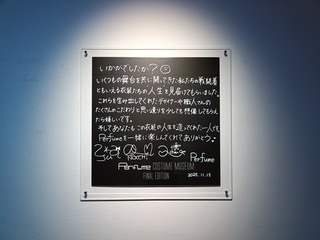 いかがでしたか？
いくつもの舞台を共に闘ってきた私たちの戦闘着
ともいえる衣装たちの人生を見届けてもらいました。
これらを生み出してくれたデザイナーや職人さんの
たくさんのこだわりと思い遣りを少しでも想像してもらえ
たら嬉しいです。
そしてあなたもこの衣装の人生を造ってくれた一人です。
Perfumeを一緒に楽しんでくれてありがとう♪
NOCCHi Perfume
Perfume COSTUME MUSEUM
FINAL EDITION
2025.11.15